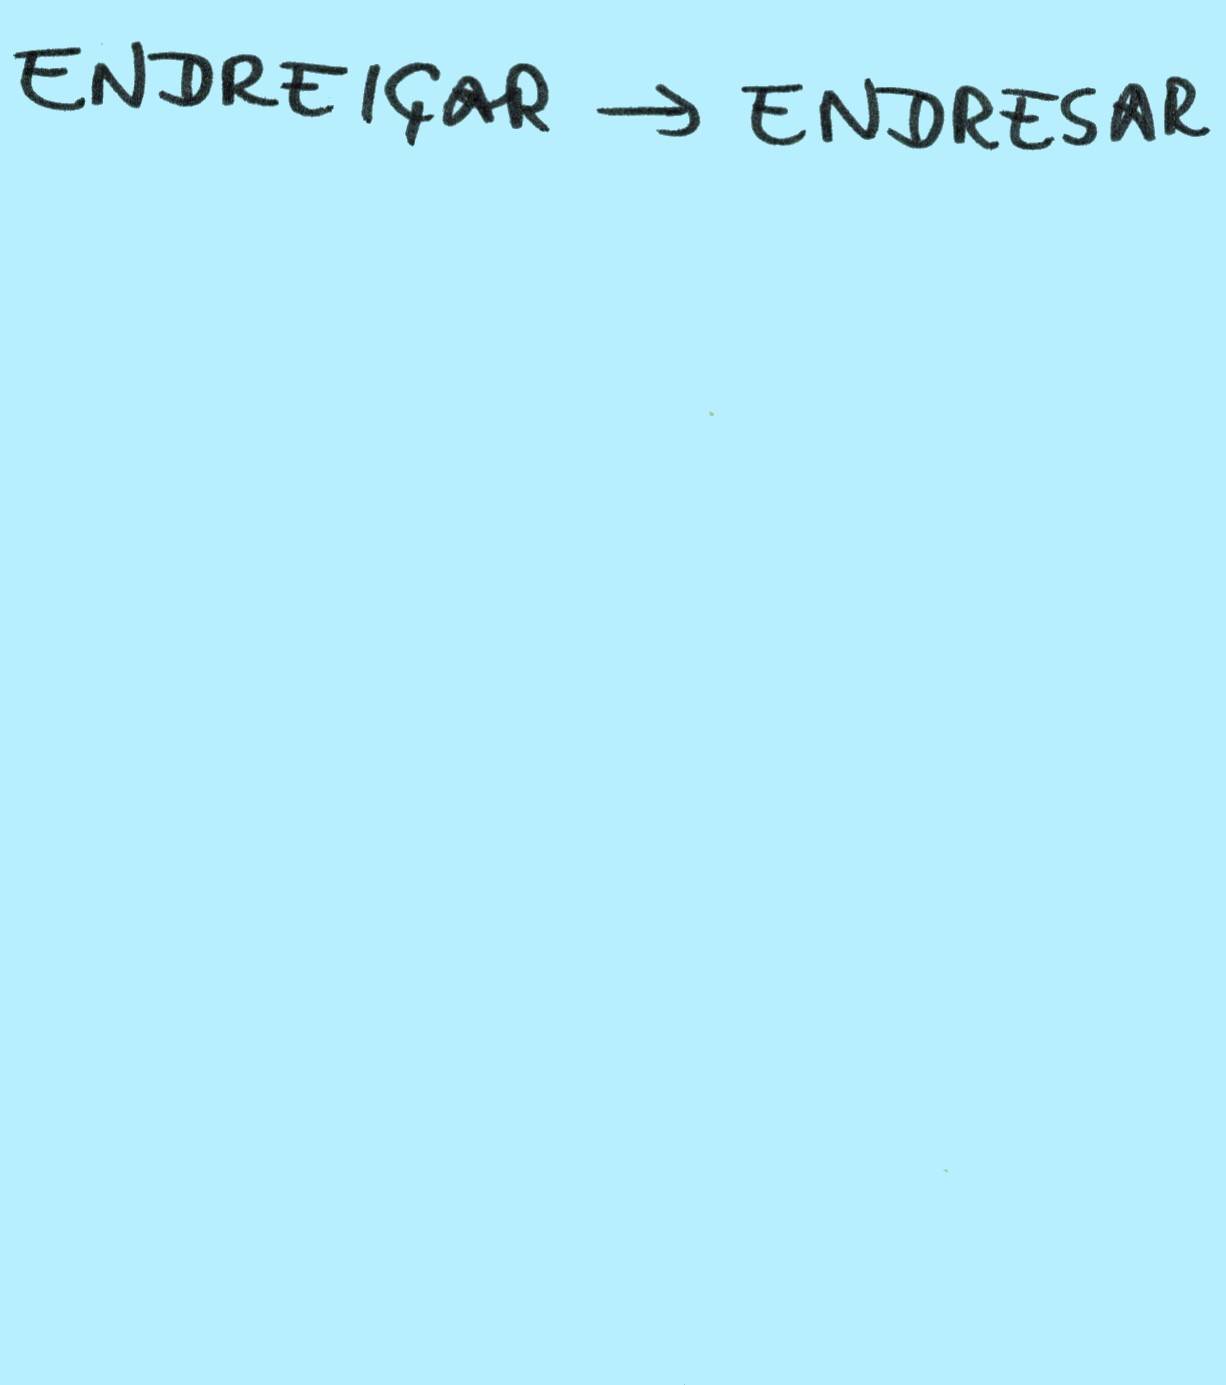 ENDREIÇAR → ENDRESAR